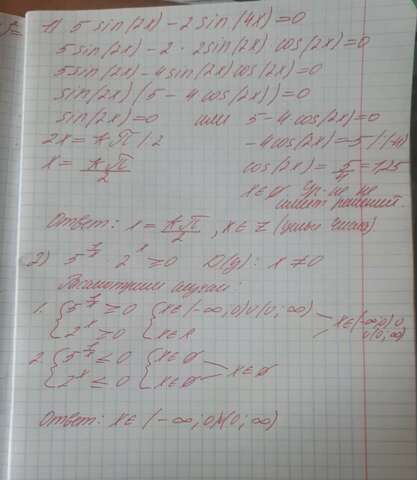 1) 5 sin(2x) - 2 sin(4x) = 0
5 sin(2x) - 2 · 2 sin(2x) · cos(2x) = 0
5 sin(2x) - 4 sin(2x) cos(2x) = 0
sin(2x) (5 - 4 cos(2x)) = 0
sin(2x) = 0 или 5 - 4 cos(2x) = 0
2x = kπ |:2 -4 cos(2x) = 5 |:(-4)
x = kπ/2 cos(2x) = 5/4 = 1,25
x ∈ ∅ не
имеет решений.
Ответ: x = kπ/2, k ∈ Z (целые числа)
2) 5^(1/x) · 2^x ≥ 0 D(y): x ≠ 0
Рассмотрим случаи:
1. { 5^(1/x) ≥ 0 { x ∈ (-∞; 0) ∪ (0; ∞) x ∈ (-∞; 0) ∪
{ 2^x ≥ 0 { x ∈ R ∪ (0; ∞)
2. { 5^(1/x) ≤ 0 { x ∈ ∅ x ∈ ∅
{ 2^x ≤ 0 { x ∈ ∅
Ответ: x ∈ (-∞; 0) ∪ (0; ∞)